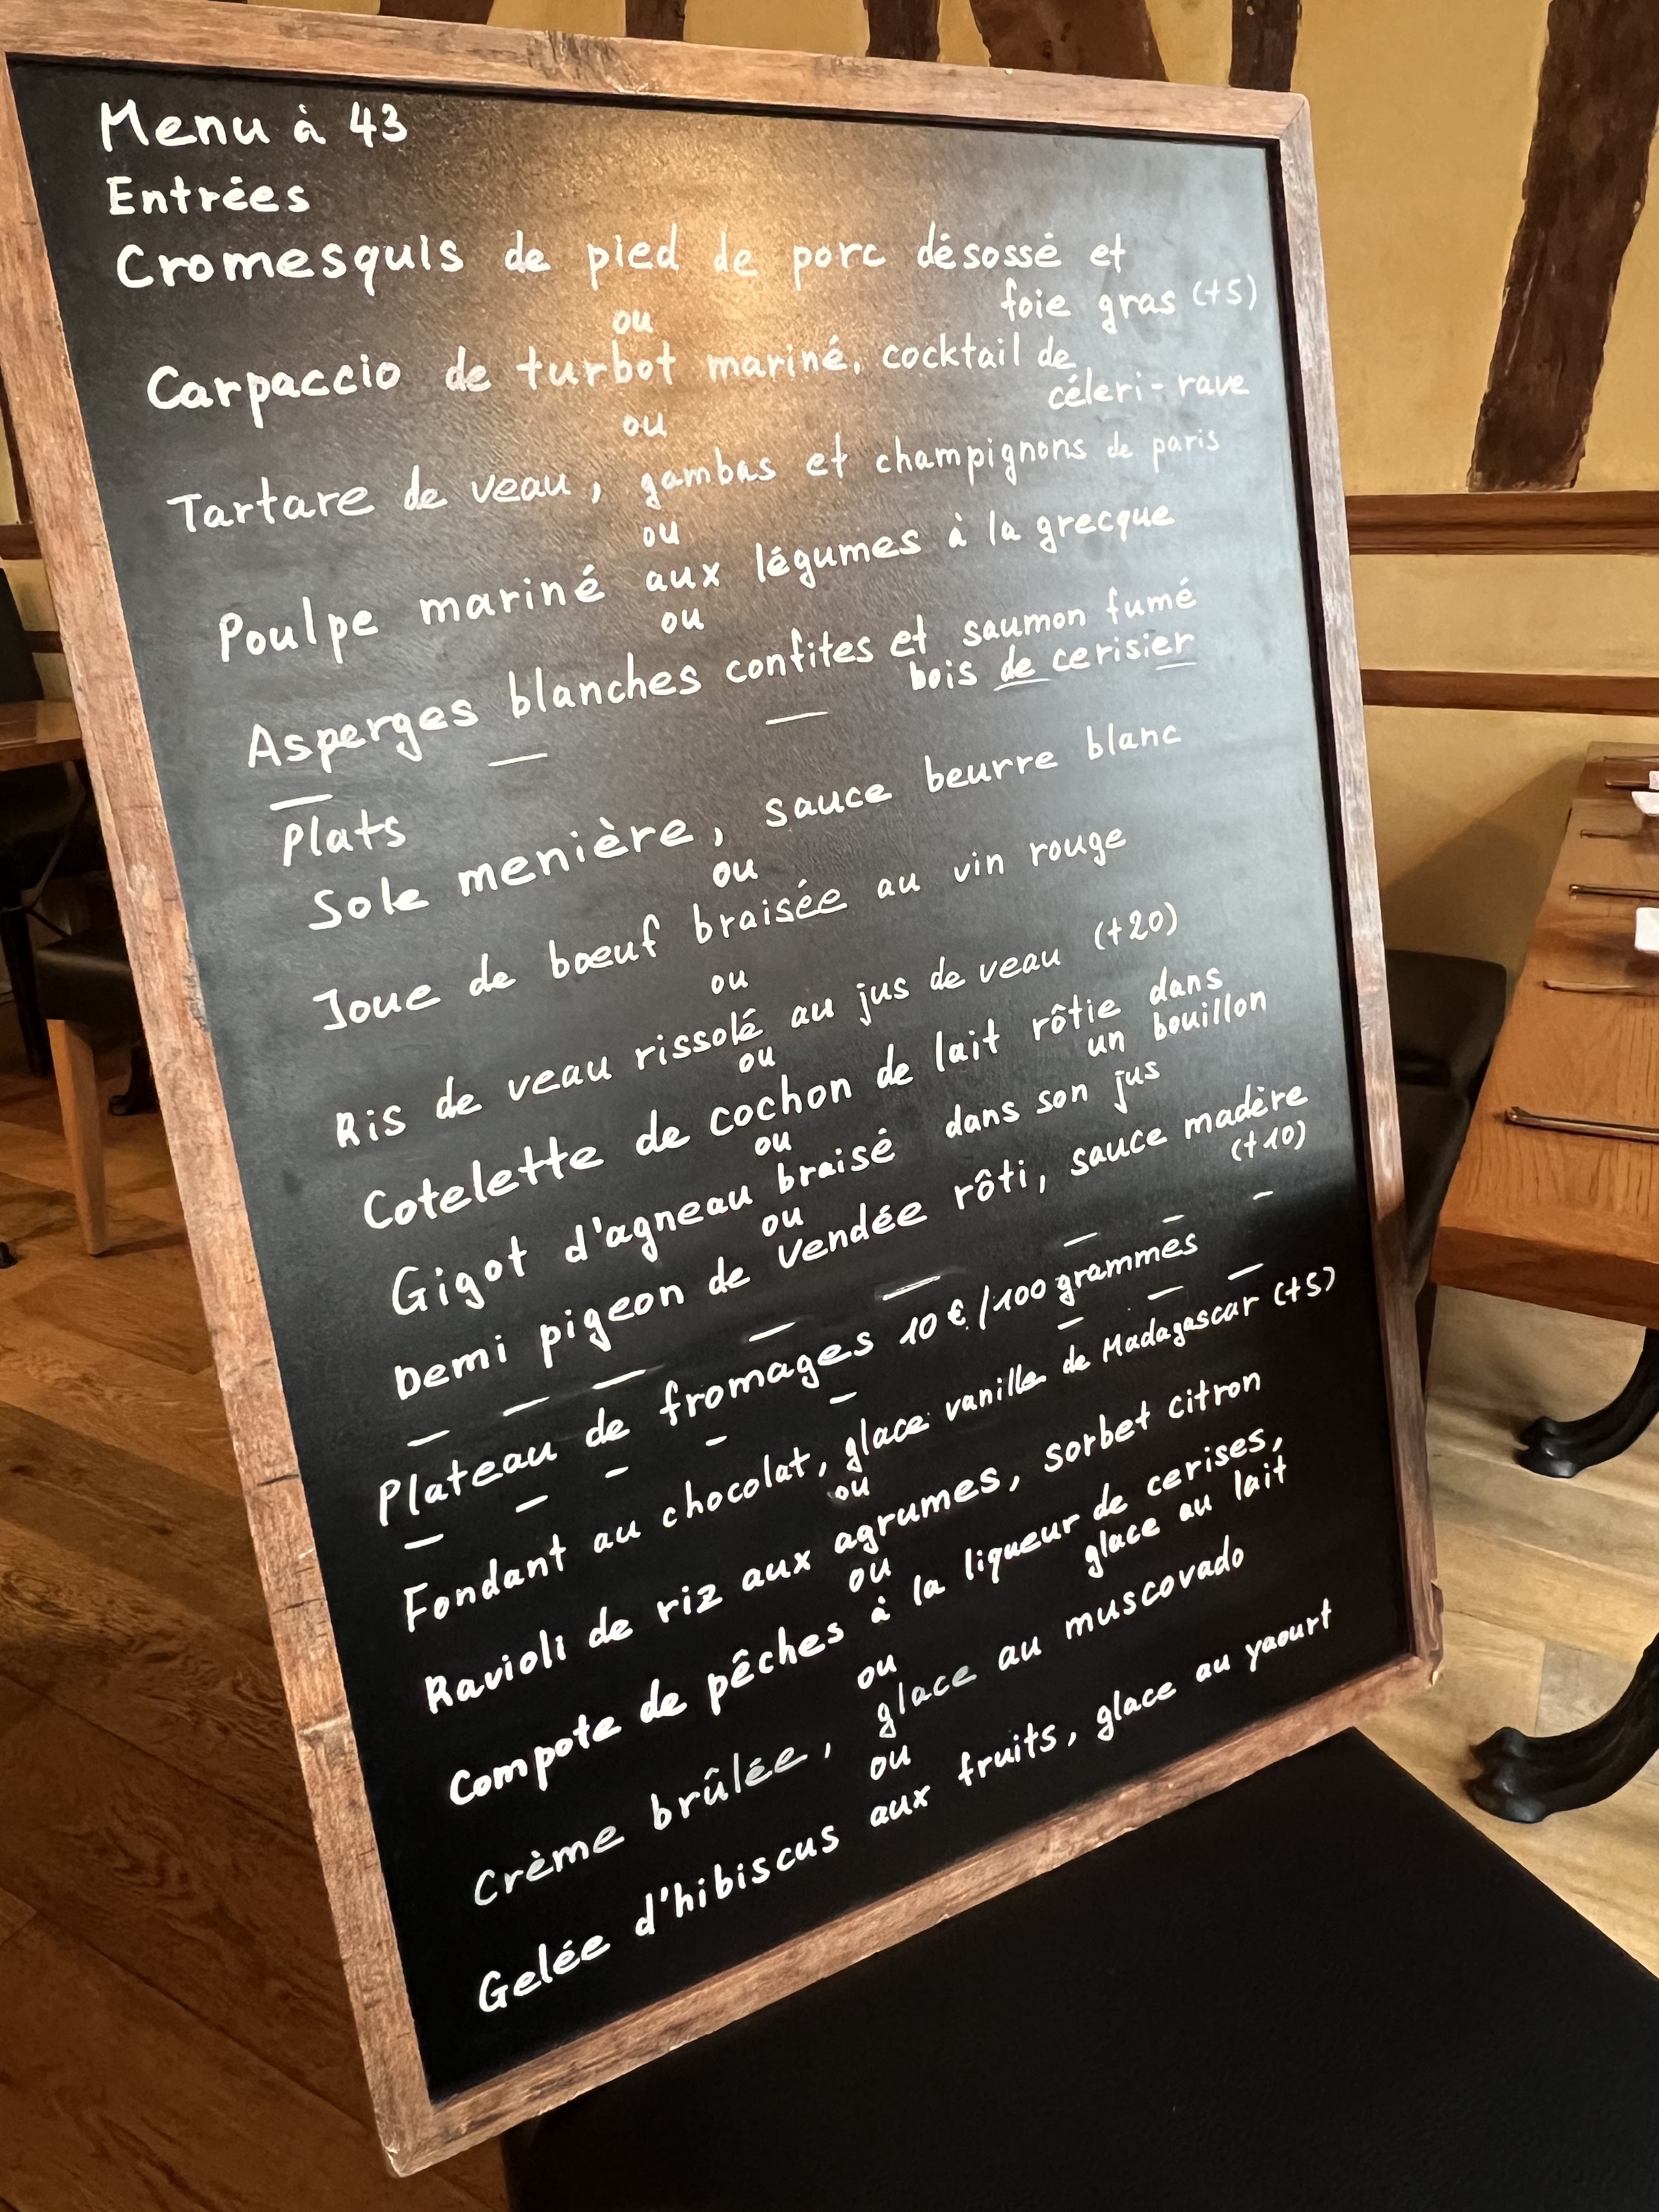 Menu à 43
Entrées
Cromesquis de pied de porc désossé et
foie gras (+5)
ou
Carpaccio de turbot mariné, cocktail de
céleri-rave
ou
Tartare de veau, gambas et champignons de paris
ou
Poulpe mariné aux légumes à la grecque
ou
Asperges blanches confites et saumon fumé
bois de cerisier
Plats
Sole menière, sauce beurre blanc
ou
Joue de bœuf braisée au vin rouge
ou
Ris de veau rissolé au jus de veau (+20)
ou
Cotelette de cochon de lait rôtie dans
un bouillon
ou
Gigot d'agneau braisé dans son jus
ou
Demi pigeon de Vendée rôti, sauce madère
(+10)
Plateau de fromages 10€/100 grammes
Fondant au chocolat, glace vanille de Madagascar (+5)
ou
Ravioli de riz aux agrumes, sorbet citron
ou
Compote de pêches à la liqueur de cerises,
glace au lait
ou
Crème brûlée, glace au muscovado
ou
Gelée d'hibiscus aux fruits, glace au yaourt